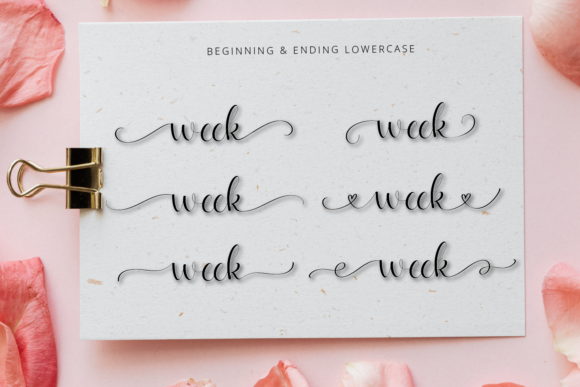 BEGINNING & ENDING LOWERCASE
week week
week week
week week